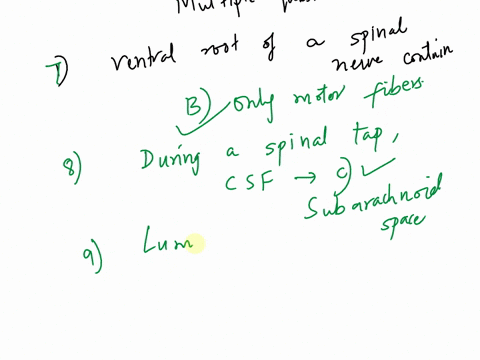 Multiple
7) ventral root of a spinal
nerve contain
B) only motor fibers.
8) During a spinal tap,
CSF → c)
Subarachnoid
space
9) Lum